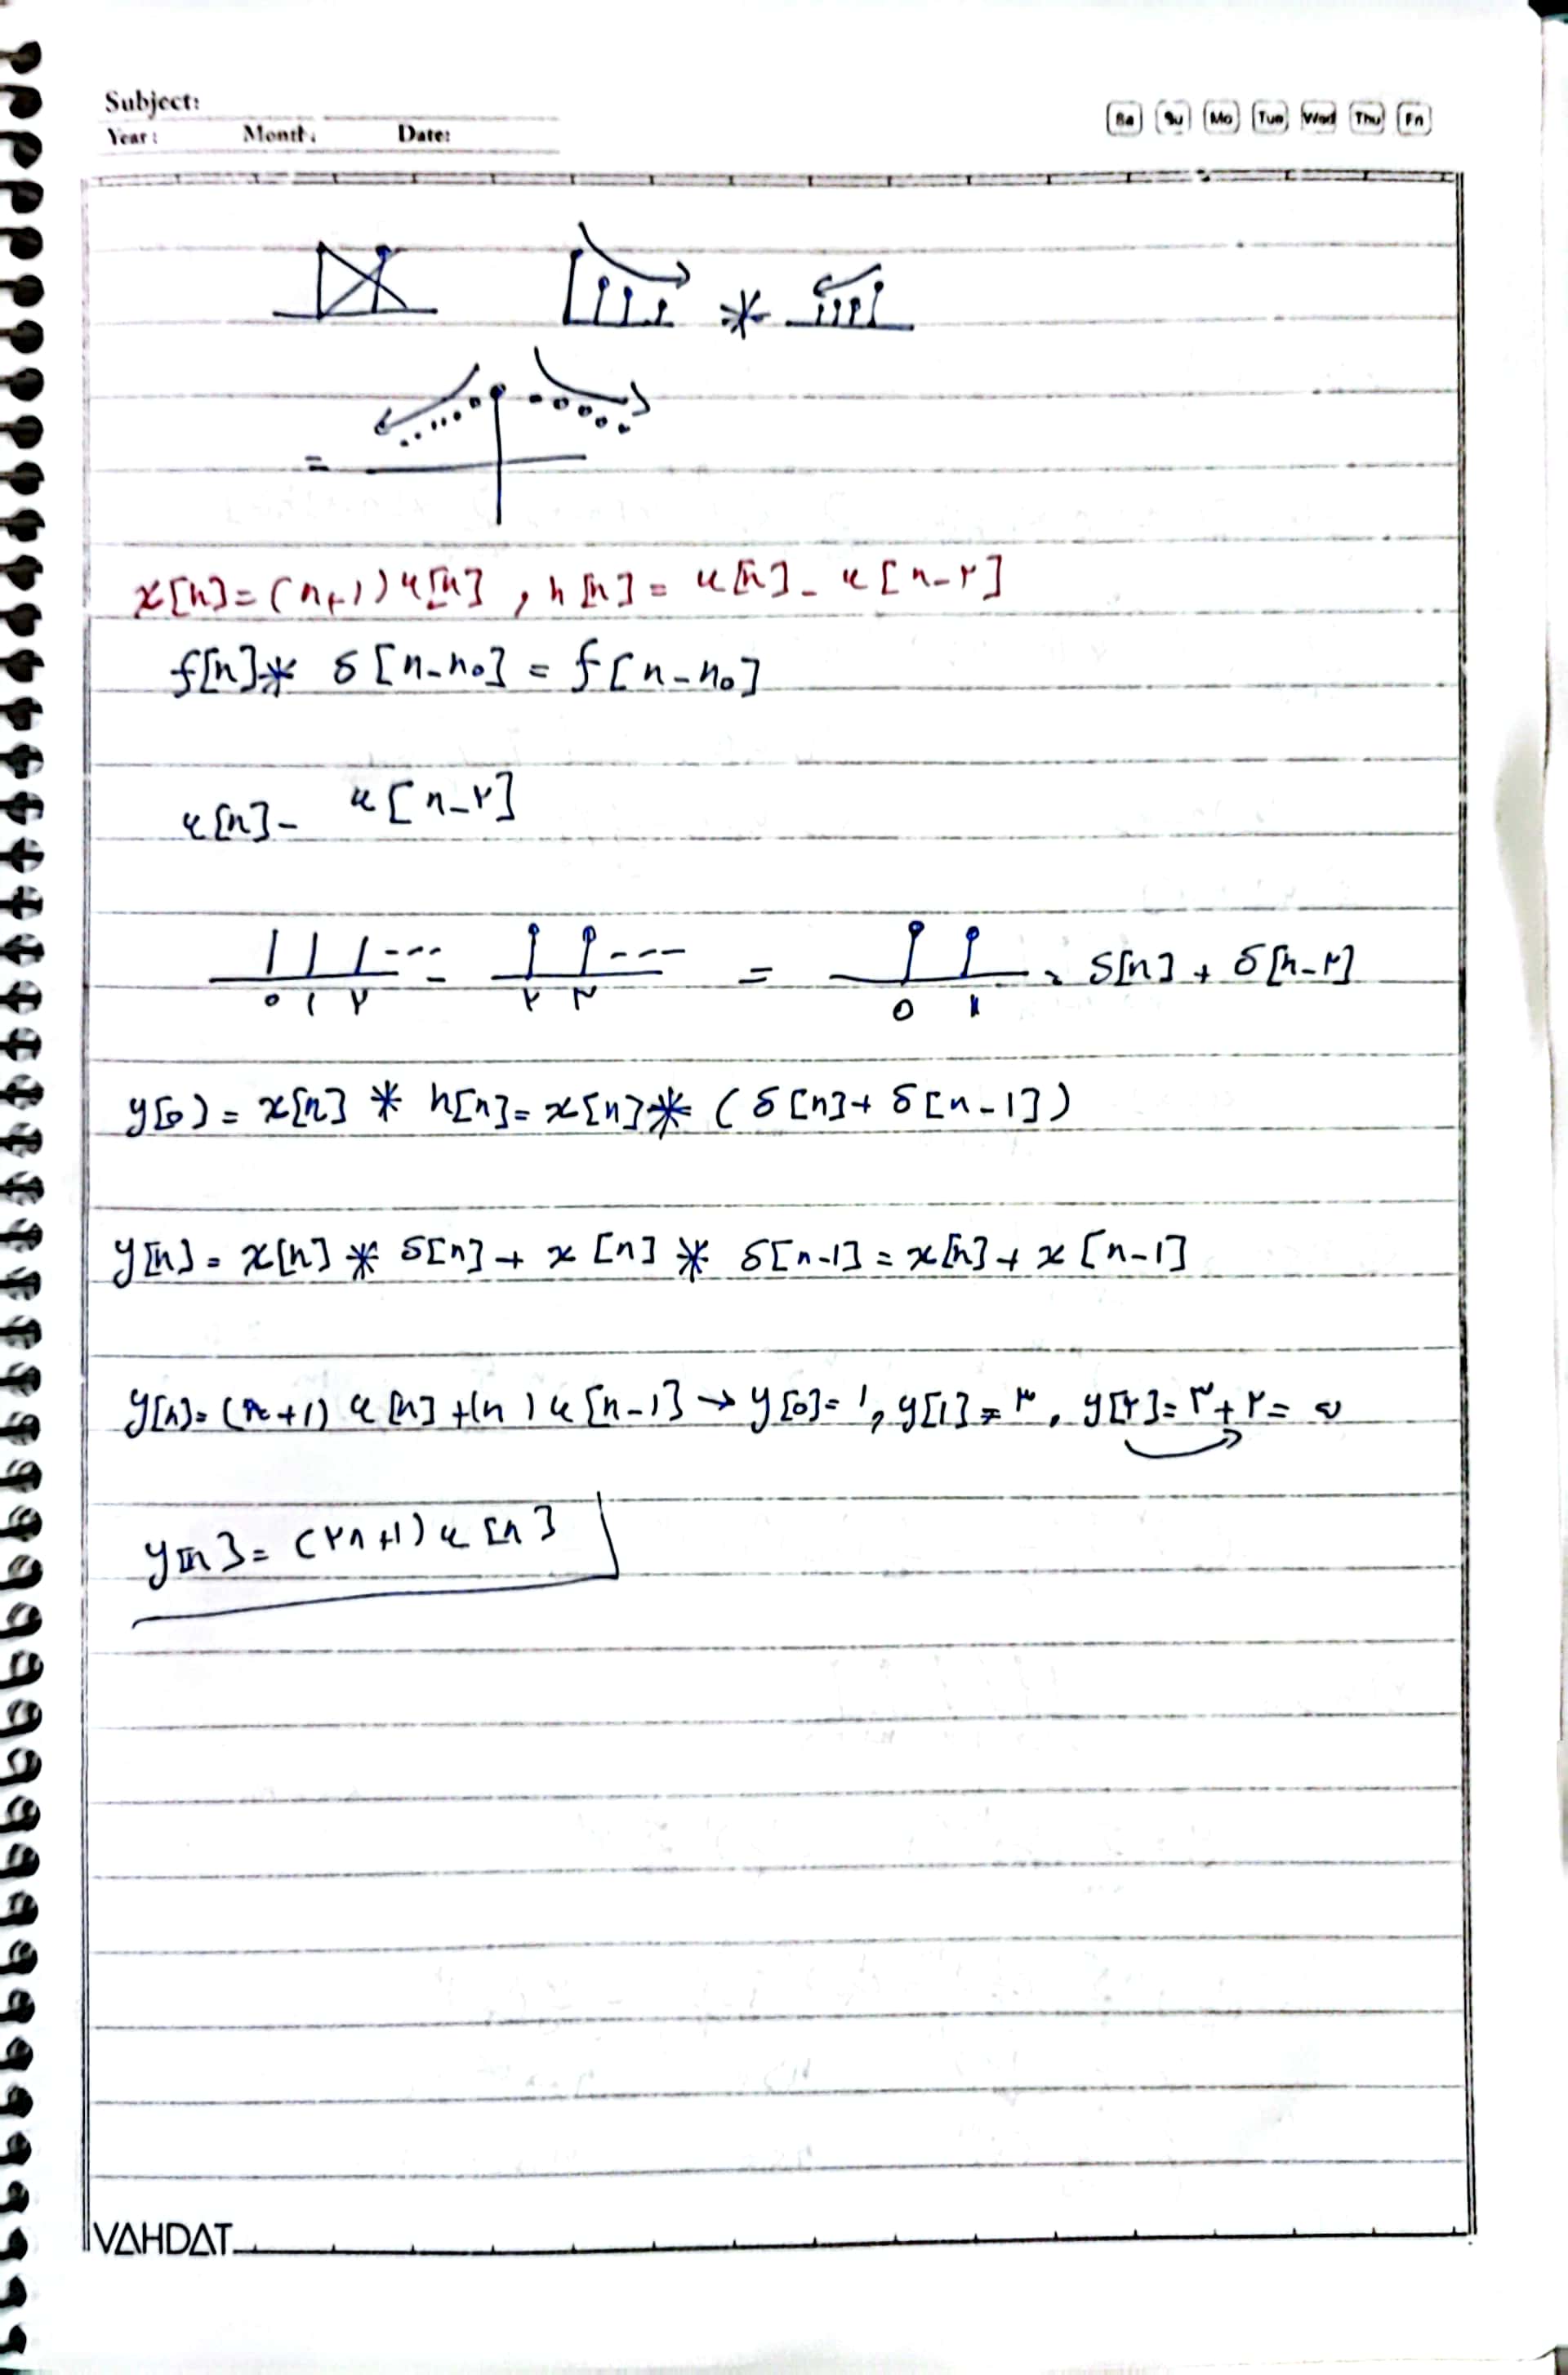 Subject:
Year: Month. Date:
Sa Su Mo Tue Wed Thu Fri
*
=
x[n]=(n+1)u[n] , h[n]= u[n]- u[n-۲]
f[n]* δ[n-n₀] = f[n-n₀]
u[n]- u[n-۲]
--- - --- = = δ[n] + δ[n-۲]
۰ ۱ ۲ ۲ ۳ 0 ۱
y[0] = x[n] * h[n]= x[n]* (δ[n]+ δ[n-1])
y[n]= x[n] * δ[n]+ x[n] * δ[n-1] = x[n]+ x[n-1]
y[n]= (n+1) u[n] +(n) u[n-1] → y[0]= 1, y[1]= ۳, y[۲]= ۳+۲= ۵
y[n]= (۲n+1) u[n]
VAHDAT